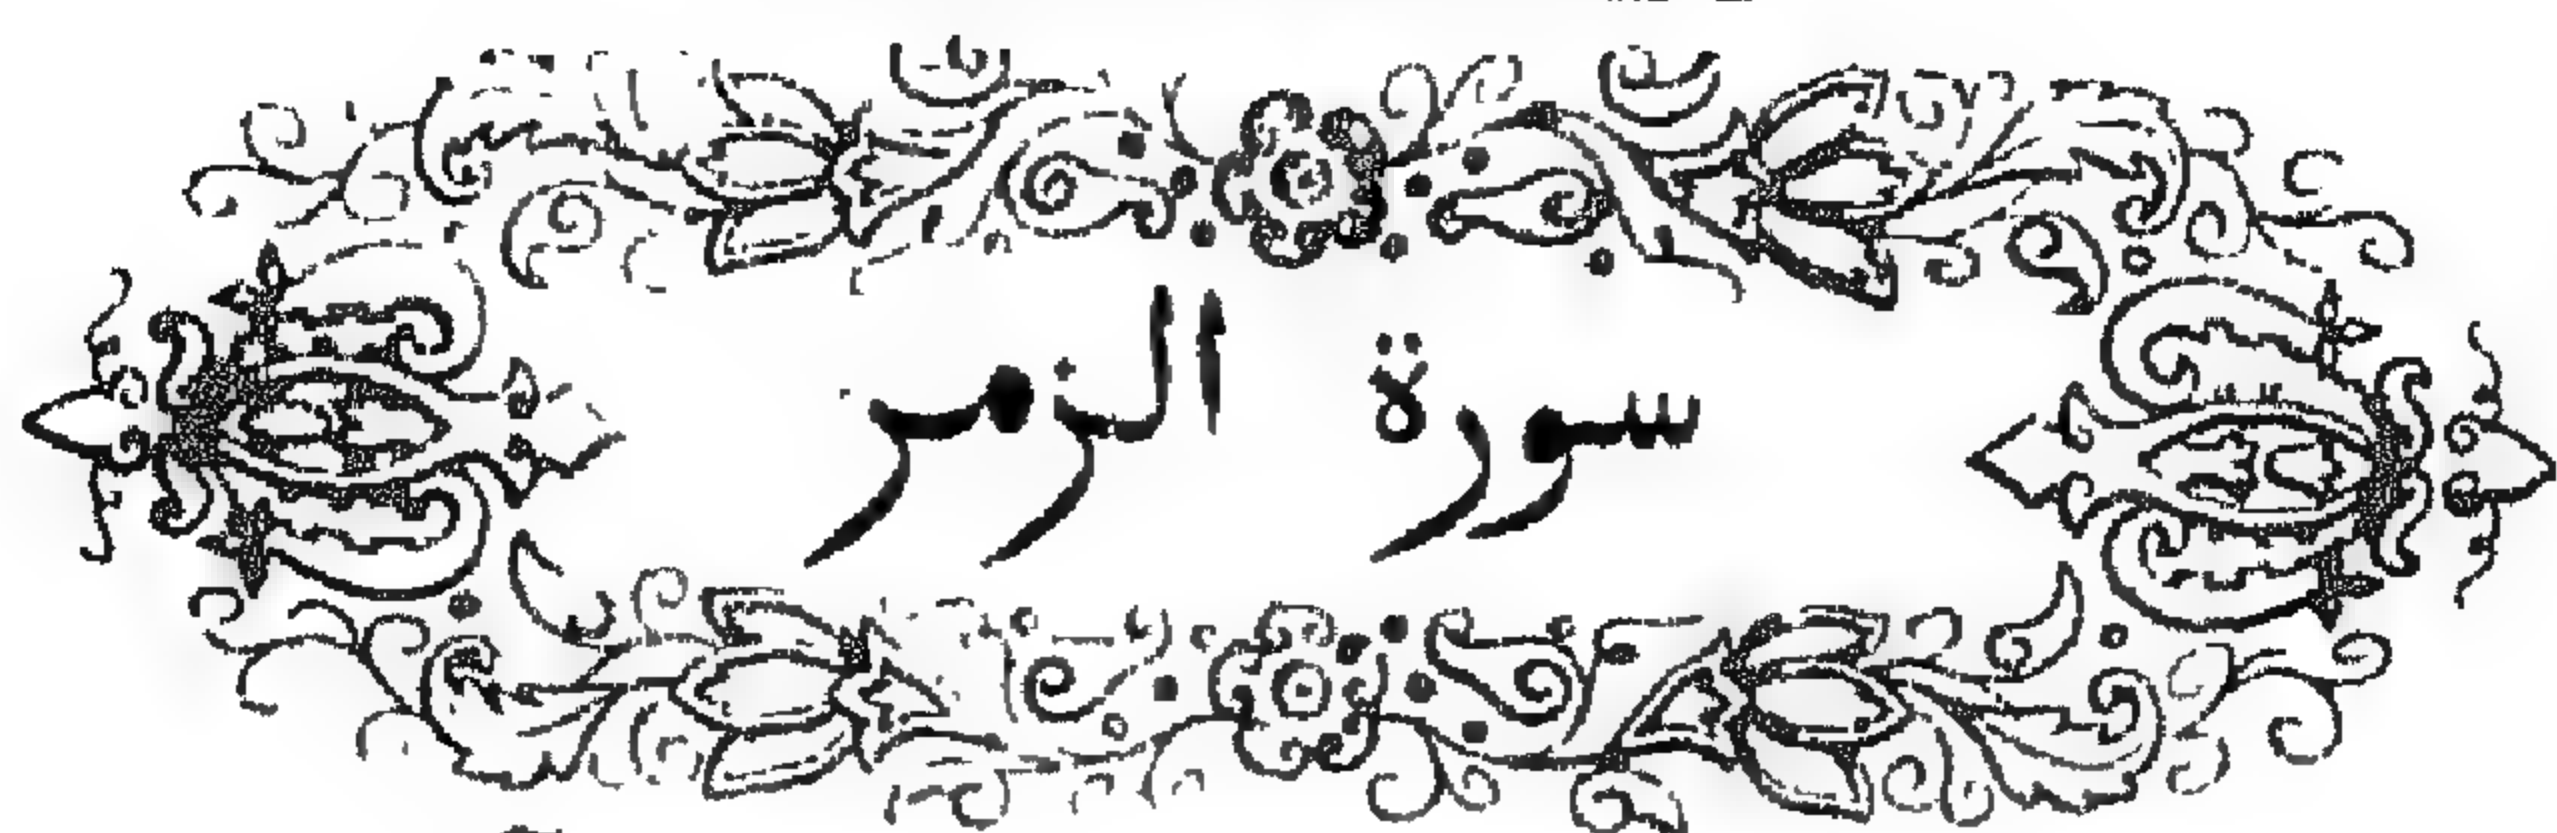 سورة الزمر